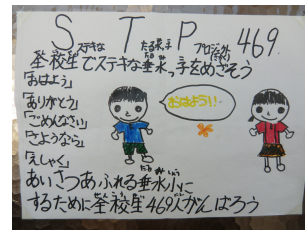 STP469
ステキな たるみ プロジェクト
全校生でステキな垂水っ子をめざそう
「おはよう」
「ありがとう」
「ごめんなさい」
「さようなら」
「えしゃく」
おはよう!
あいさつあふれる垂水小に
するために全校生469人がんばろう